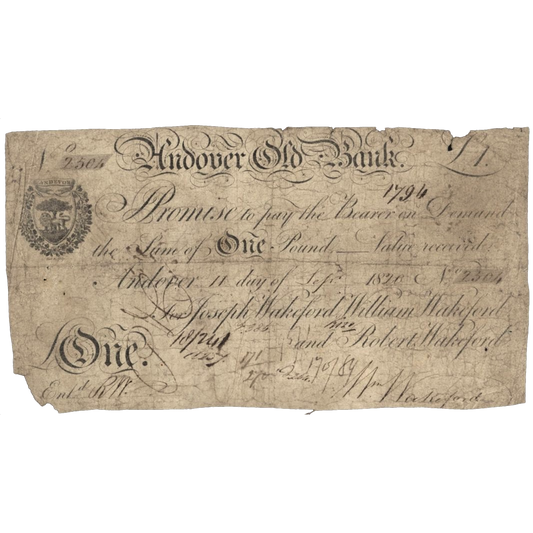 No 2304 Andover Old Bank. £1.
ANDOVER
1794
I Promise to pay the Bearer on Demand
the Sum of One Pound Value received
Andover 11 day of Sepr. 1820 No 2304
For Joseph Wakeford, William Wakeford
and Robert Wakeford
One.
Entd. RW.
Wm Wakeford